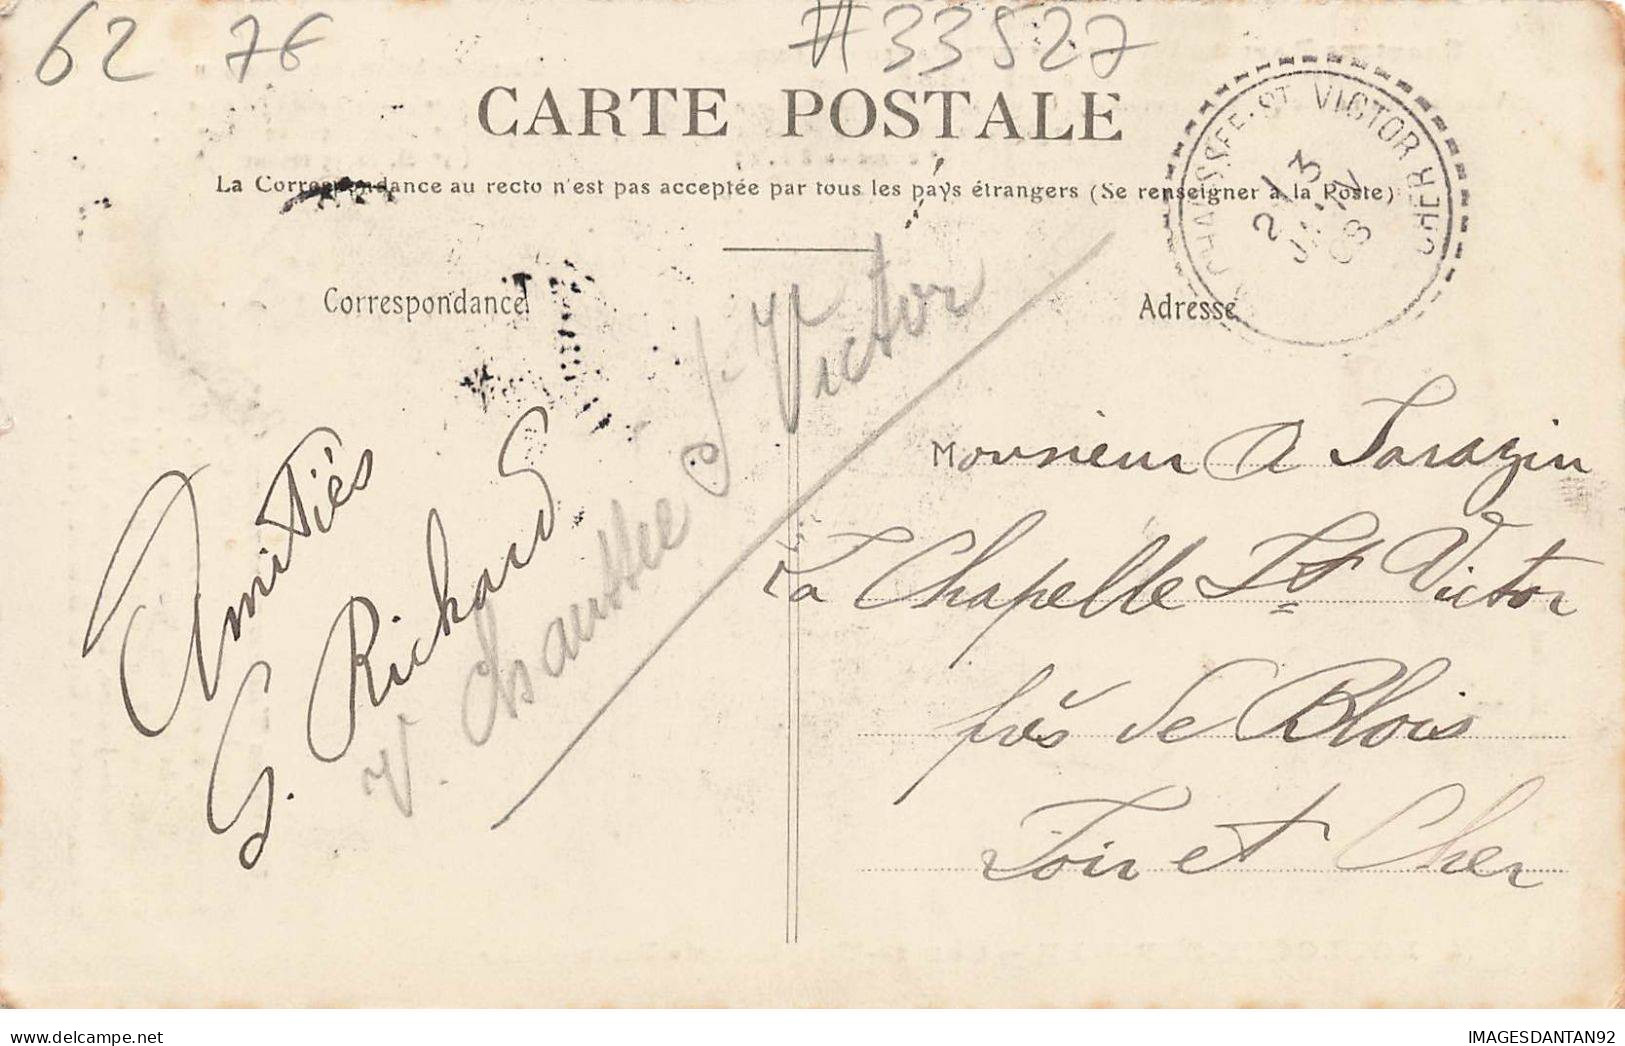 62 7E #33527
CARTE POSTALE
La Correspondance au recto n'est pas acceptée par tous les pays étrangers (Se renseigner à la Poste)
CHAUSSEE-ST VICTOR
CHER
Correspondance
Adresse
Amitiés
G. Richard
V. Chaussée St Victor
Monsieur A Sarazin
La Chapelle St Victor
près de Blois
Loir et Cher
IMAGESDANTAN92